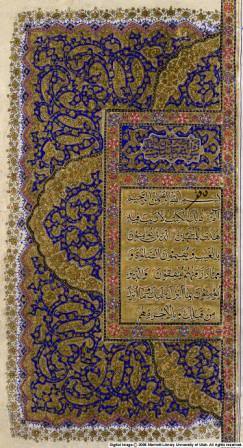 بسم الله الرحمن الرحيم
الم ذلك الكتاب لا ريب فيه
هدى للمتقين الذين يؤمنون
بالغيب ويقيمون الصلوة و
مما رزقناهم ينفقون والذين
يؤمنون بما انزل اليك وما انزل
من قبلك وبالاخرة هم
Digital Image © 2006 Marriott Library, University of Utah. All rights reserved.